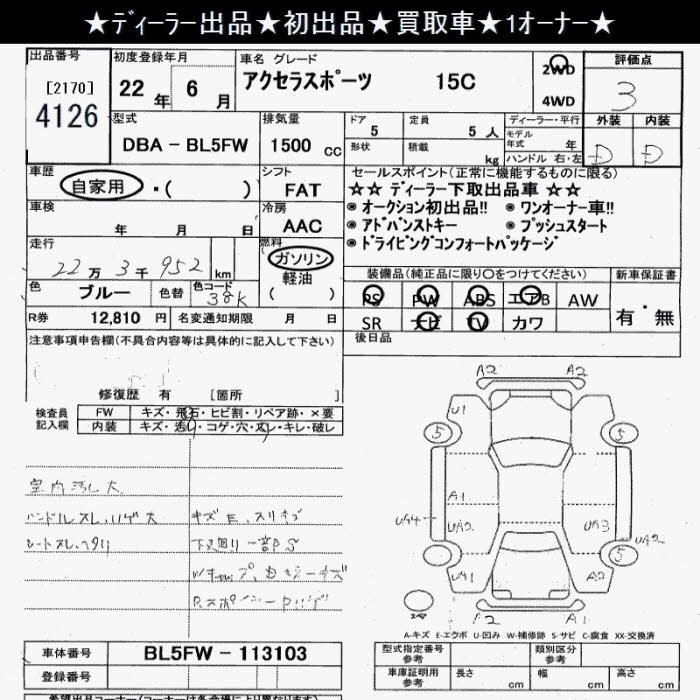 ★ディーラー出品★初出品★買取車★1オーナー★
出品番号
[2170]
4126
初度登録年月
22 年 6 月
車名 グレード
アクセラスポーツ 15C
2WD
4WD
評価点
3
外装 内装
D D
型式
DBA - BL5FW
排気量
1500 cc
ドア
5
定員
5 人
形状
積載
kg
ディーラー・平行
モデル
年式 年
ハンドル 右・左
車歴
自家用 ・( )
シフト
FAT
車検
年 月 日
冷房
AAC
走行
22万 3千 952 km
燃料
ガソリン
軽油
( )
色
ブルー
色替
色コード
38K
R券 12,810 円
名変通知期限 月 日
セールスポイント(正常に機能するものに限る)
☆☆ ディーラー下取出品車 ☆☆
◉ オークション初出品!! ◉ ワンオーナー車!!
◉ アドバンストキー ◉ プッシュスタート
◉ ドライビングコンフォートパッケージ
装備品(純品品に限り〇をつけてください)
PS PW ABS エアB AW
SR ナビ TV カワ
新車保証書
有・無
後日品
注意事項申告欄(不具合内容等は具体的に記入して下さい)
修復歴 有 [箇所 ]
検査員
記入欄
FW キズ・飛石・ヒビ割・リペア跡・×要
内装 キズ・汚レ・コゲ・穴・スレ・キレ・破レ
室内汚レ大
ハンドルスレ、ハゲ大
シートスレ、ヘタリ
キズE、スリキズ
下廻り一部S
A2 A2
U1
5 5
A1
UA4 UA2 UA3 UA2
UA1 A2
5
A2 A1
A-キズ E-エクボ U-凹み W-補修跡 S-サビ C-腐食 XX-交換済
車体番号 BL5FW - 113103
登録番号
型式指定番号
参考
類別区分
参考
車庫証明用
参考
長さ cm
幅 cm
高さ cm